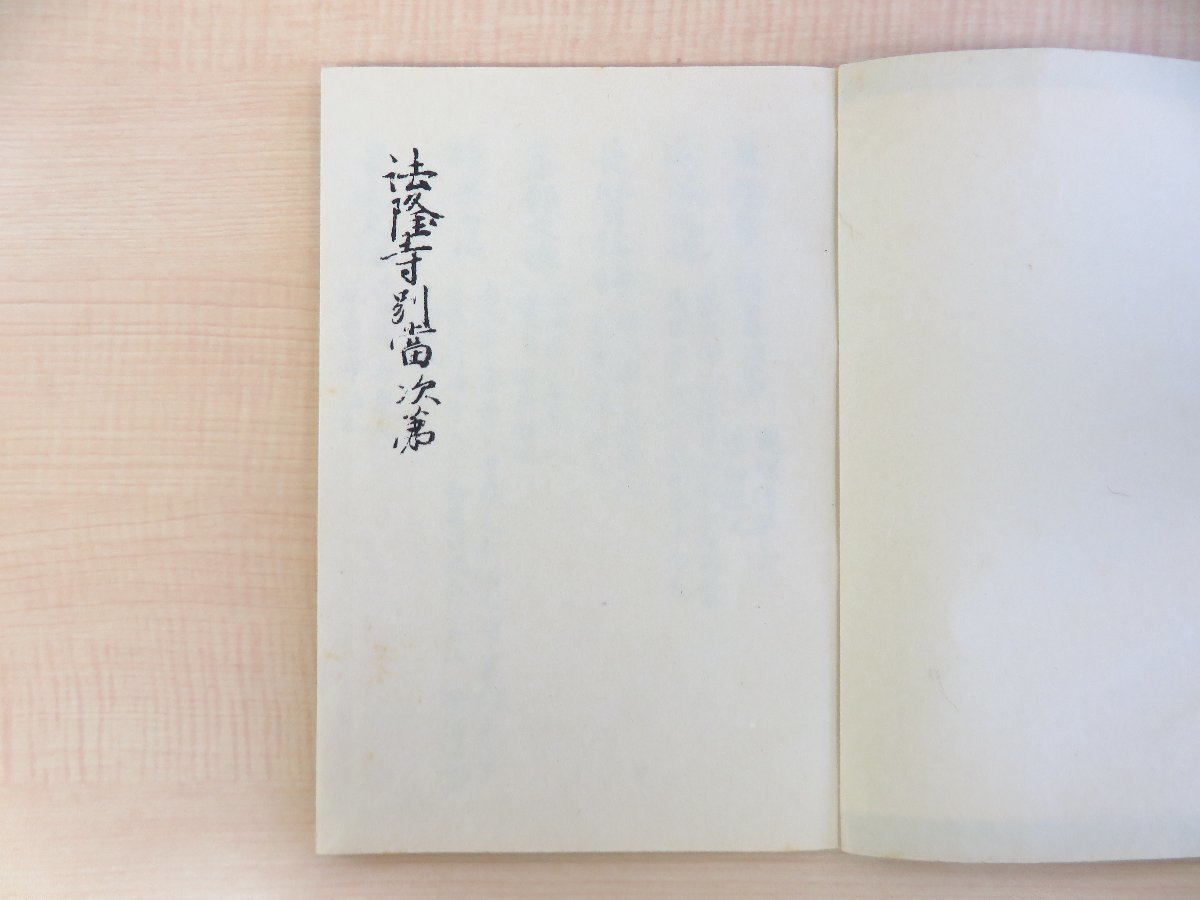 法隆寺別當次第